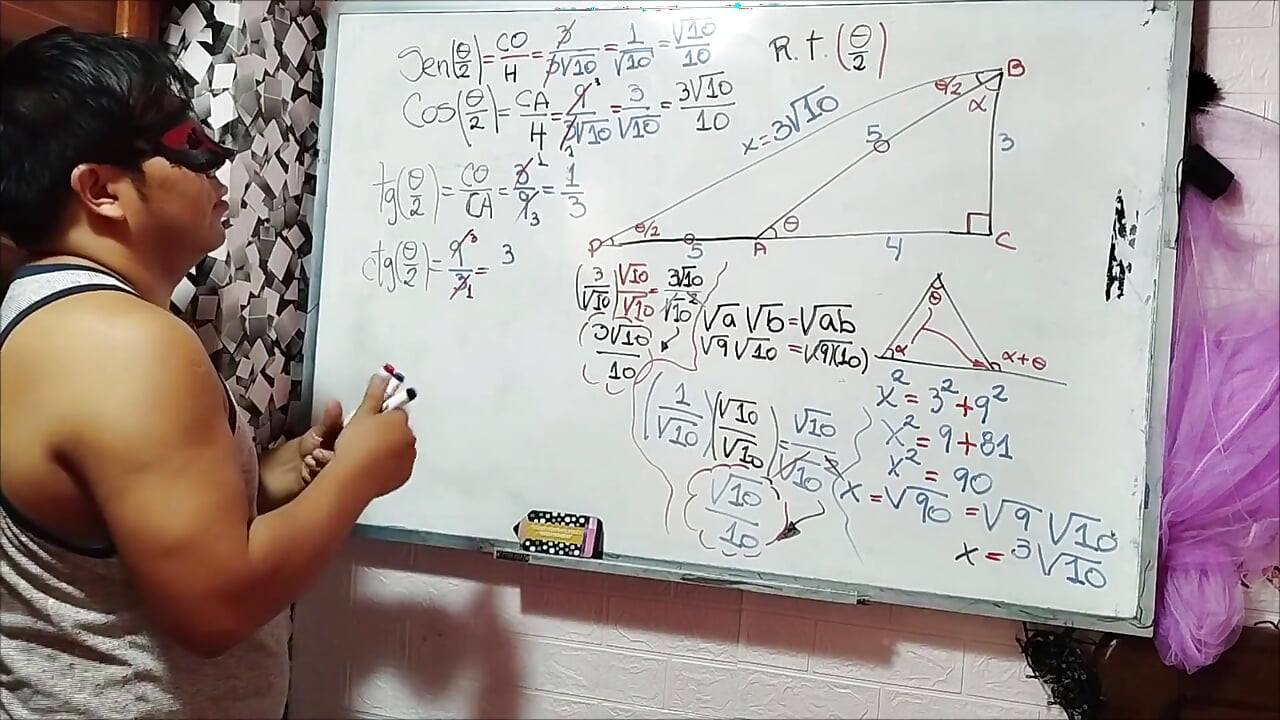 Sen(θ/2) = CO/H = 3/3√10 = 1/√10 = √10/10
R.T. (θ/2)
Cos(θ/2) = CA/H = 9³/3√10₁ = 3/√10 = 3√10/10
tg(θ/2) = CO/CA = 3¹/9₃ = 1/3
ctg(θ/2) = 9³/3₁ = 3
B
θ/2
α
x=3√10
5
3
θ/2
θ
P
5
A
4
C
(3/√10) √10/√10 = 3√10/√10²
3√10/10
√a √b = √ab
√9 √10 = √(9)(10)
θ
α
α+θ
(1/√10)(√10/√10) = √10/√10²
√10/10
x² = 3² + 9²
x² = 9 + 81
x² = 90
x = √90 = √9 √10
x = 3√10